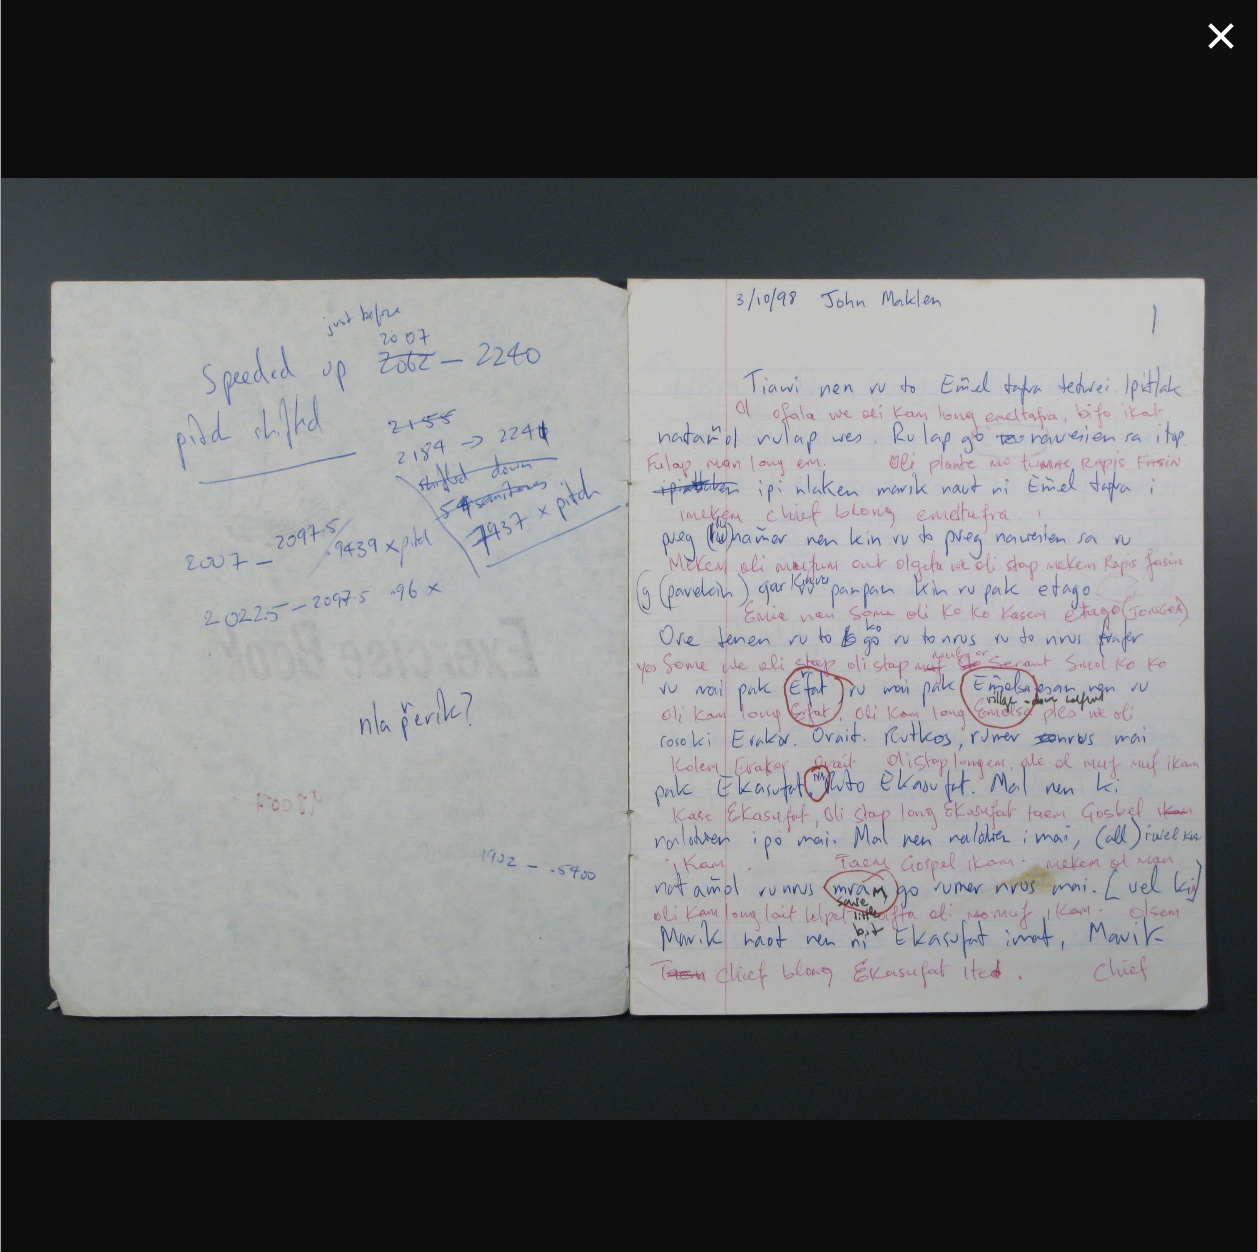 just before
2007
Speeded up 2062 — 2240
pitch shifted
2155
2184 → 2241
shifted down
54 semitones
.7937 × pitch
2007 — 2097.5
.9439 × pitch
2022.5 — 2097.5 .96 ×
nla p̃erik?
1902 — .5400
3/10/98 John Maklen
1
Tiawi nen ru to Em̃el tafra tedwei. Ipitlak
Ol olfala we oli kam long emeltafra, bifo ikat
natam̃ol nulap wes. Ru lap go nawesien sa itop.
Fulap man long em. Oli plante mo tumas Rapis Fasin
ipi nlaken marik naut ni Em̃el tafra i
imekem chief blong emeltafra i
preg namer nen kin ru to preg nawesien sa ru
Mekem oli out olgeta we oli stap mekem Rapis fasin
(parekin) panpan kin ru pak etago
nau some oli ko ko kasem etago (TONGOA)
Ore tenen ru to ko go ru to nrus ru to nrus
yes Some we oli stap oli stap muf or Seraot Smol ko ko
ru mai pak Efat, ru mai pak Em̃elsa esan nen ru
village
oli kam long Eifat, oli kam long Emelsa ples we oli
rosoki Erakor. Orait. Rutkos, rumer nrus mai
Kolem Erakor Orait Oli stap longem, ale ol muf muf ikam
pak Ekasufat, Na Ruto Ekasufat. Mal nen ki
Kasem Ekasufat, Oli stap long Ekasufat taem Gosbel ikam
nalotwen ipo mai. Mal nen nalotwen imai, (all)
iKam. Taem Gospel ikam. mekem ol man
natam̃ol runrus mram, go rumer nrus mai. [uel ki]
same little bit
oli kam long lait lelpet afta oli muf ikam. Olsem
Marik naot nen ni Ekasufat imat, Marik
Taem Chief blong Ekasufat ited. Chief